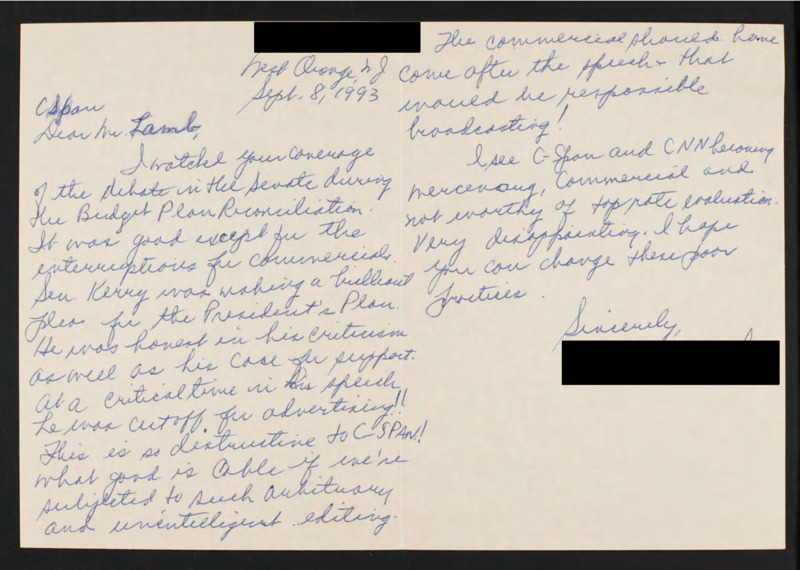 West Orange, NJ
Sept. 8, 1993
CSpan
Dear Mr. Lamb,
I watched your coverage
of the debate in the Senate during
the Budget Plan Reconciliation.
It was good except for the
interruptions for commercials.
Sen. Kerry was making a brilliant
plea for the President's Plan.
He was honest in his criticism
as well as his case for support.
At a critical time in his speech
he was cut off for advertising!!
This is so destructive to C-SPAN!
What good is Cable if we're
subjected to such arbituary
and unintelligent editing.
The commercial should have
come after the speech - that
would be responsible
broadcasting!
I see C-Span and CNN becoming
mercenary, Commercial and
not worthy of top rate evaluation.
Very disappointing. I hope
you can change these poor
practices.
Sincerely,